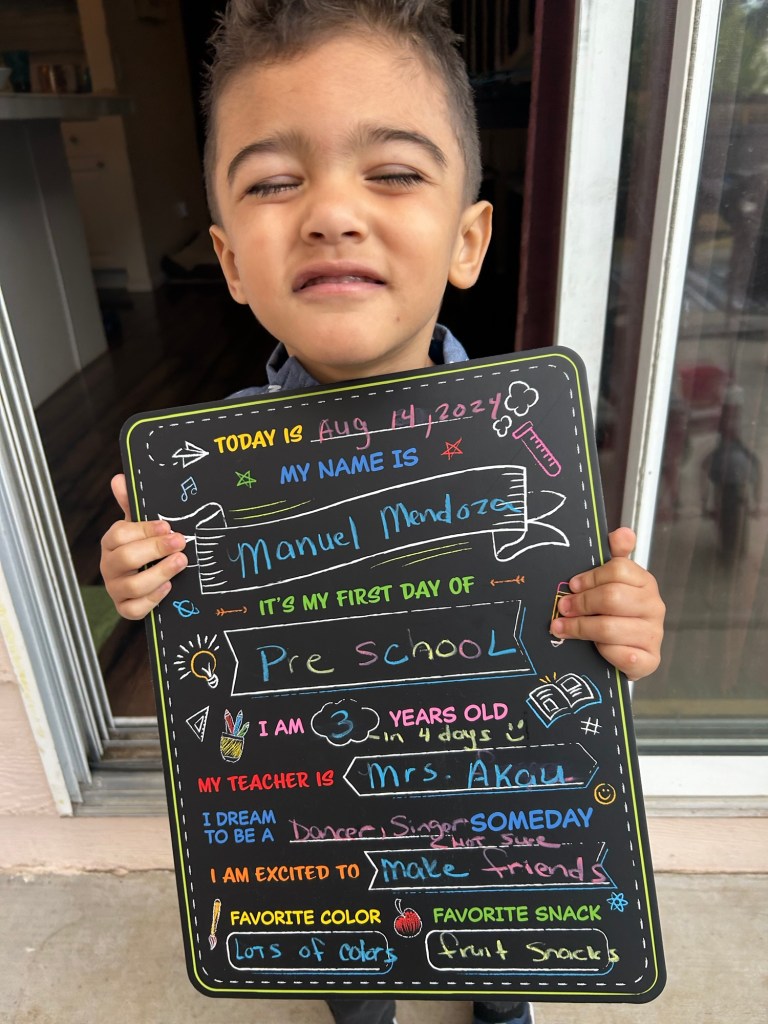 TODAY IS Aug 14, 2024
MY NAME IS
Manuel Mendoza
IT'S MY FIRST DAY OF
Pre schooL
I AM 3 YEARS OLD
-in 4 days
MY TEACHER IS Mrs. AKau
I DREAM TO BE A Dancer, Singer SOMEDAY
& Not Sure
I AM EXCITED TO make friends
FAVORITE COLOR FAVORITE SNACK
LOTS OF Colors fruit Snacks